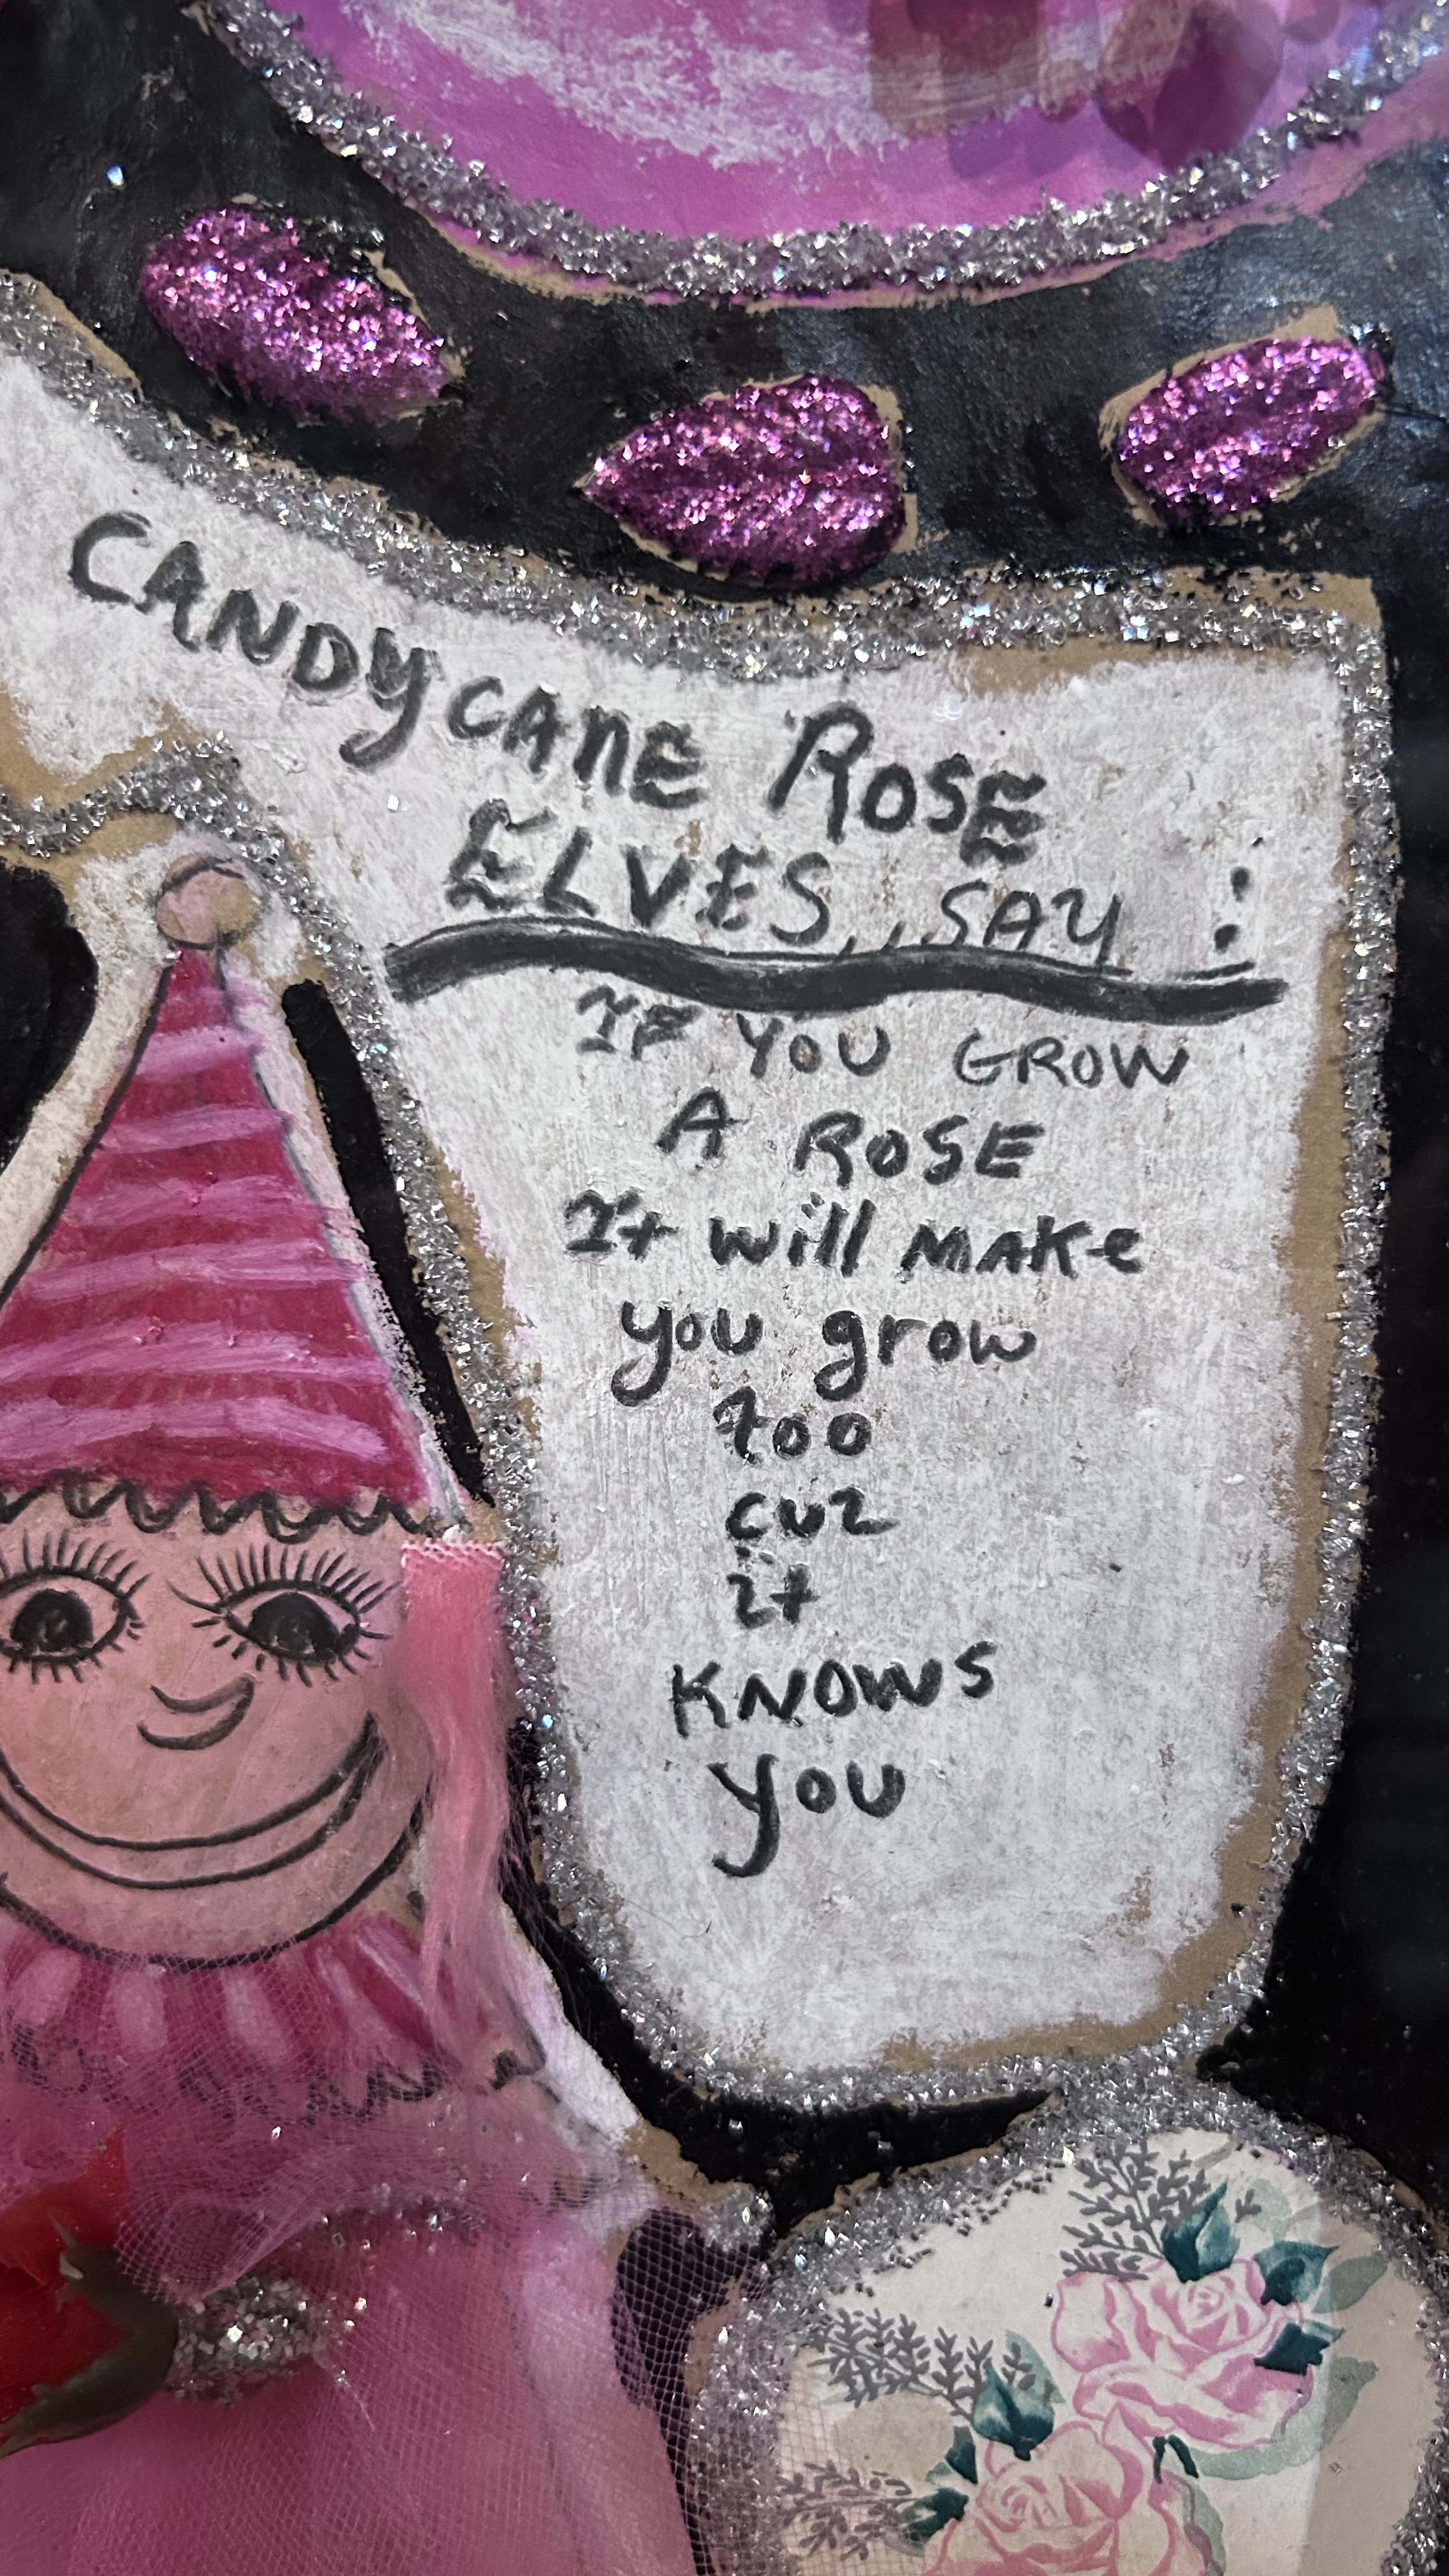 CANDYCANE ROSE
ELVES,,SAY :
IF YOU GROW
A ROSE
It will MAKe
you grow
too
cuz
it
KNOWS
you